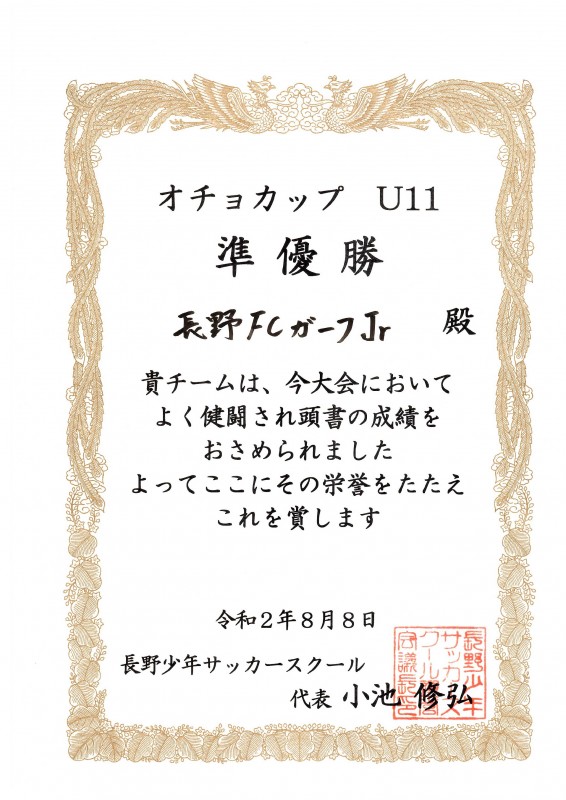 オチョカップ　U11
準優勝
長野FCガーフJr 殿
貴チームは、今大会において
よく健闘され頭書の成績を
おさめられました
よってここにその栄誉をたたえ
これを賞します
令和2年8月8日
長野少年サッカースクール
代表 小池 修弘